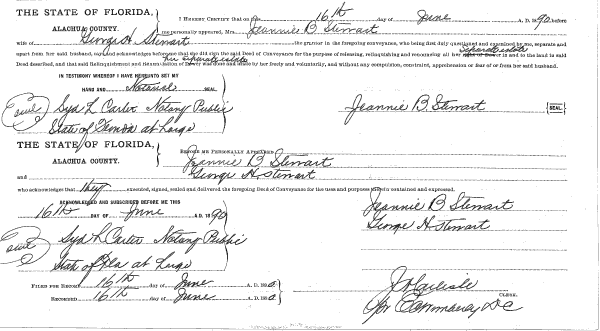 THE STATE OF FLORIDA,
ALACHUA COUNTY.
I HEREBY CERTIFY that on the 16th day of June A. D. 1890, before
me personally appeared, Mrs. Jeannie B Stewart
wife of George H Stewart the grantor in the foregoing conveyance, who being duly questioned and examined by me, separate and
apart from her said husband, say and acknowledges before me that she did sign the said Deed of Conveyance for the purpose of releasing, relinquishing and renouncing all her separate estate in and to the land in said
Deed described, and that said Relinquishment and Renunciation of her separate estate was done and made by her freely and voluntarily, and without any compulsion, constraint, apprehension or fear of or from her said husband.
IN TESTIMONY WHEREOF I HAVE HEREUNTO SET MY
HAND AND Notarial SEAL
Seal Syd L Carter Notary Public
State of Florida at Large
Jeannie B Stewart [SEAL]
THE STATE OF FLORIDA,
ALACHUA COUNTY.
BEFORE ME PERSONALLY APPEARED
Jeannie B Stewart
and George H Stewart
who acknowledge that they executed, signed, sealed and delivered the foregoing Deed of Conveyance for the uses and purposes therein contained and expressed.
ACKNOWLEDGED AND SUBSCRIBED BEFORE ME THIS
16th DAY OF June A. D. 1890
Jeannie B Stewart
George H Stewart
Seal Syd L Carter Notary Public
State of Fla at Large
FILED FOR RECORD 16th day of June A. D. 1890
RECORDED 16th day of June A. D. 1890
CLERK.
D C